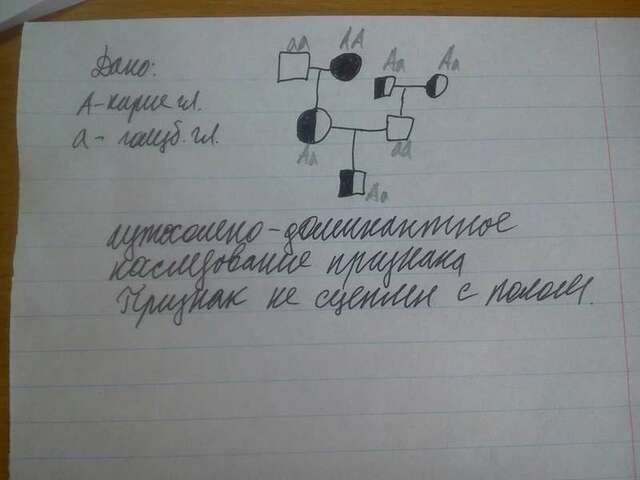 Дано:
А-карие гл.
а- голуб. гл.
аа АА
Аа Аа
Аа аа
Аа
аутосомно-доминантное
наследование признака
Признак не сцеплен с полом.